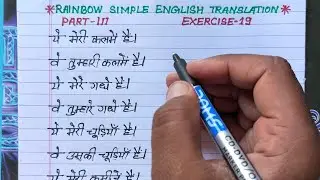 *RAINBOW SIMPLE ENGLISH TRANSLATION*
PART-III EXERCISE-19
ये मेरी कलमें हैं।
वे तुम्हारी कलमें हैं।
ये मेरे गधे हैं।
वे तुम्हारे गधे हैं।
ये मेरी चूड़ियाँ हैं।
वे उसकी चूड़ियाँ हैं।
ये मेरी कमीजें हैं।